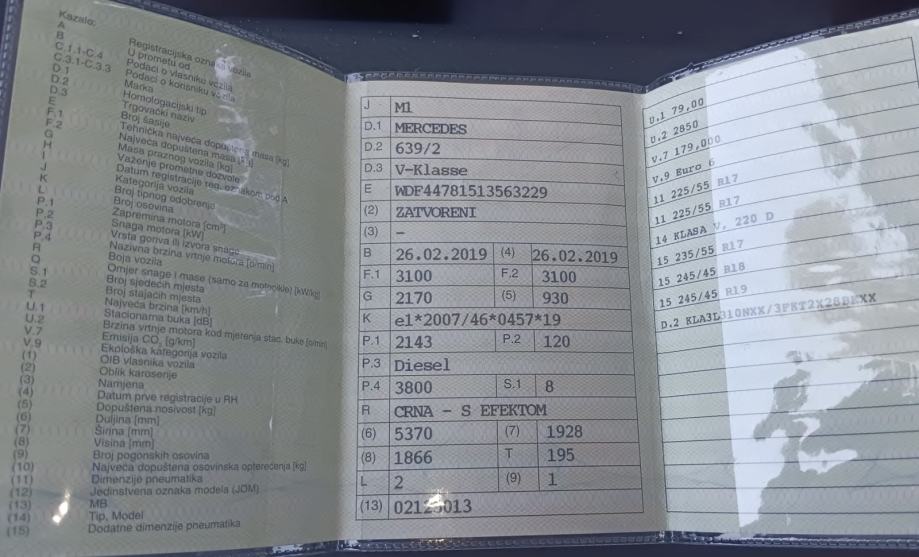 Kazalo:
A Registracijska oznaka vozila
B U prometu od
C.1.1-C.4 Podaci o vlasniku vozila
C.3.1-C.3.3 Podaci o korisniku vozila
D.1 Marka
D.2 Homologacijski tip
D.3 Trgovački naziv
E Broj šasije
F.1 Tehnička najveća dopuštena masa [kg]
F.2 Najveća dopuštena masa [kg]
G Masa praznog vozila [kg]
H Važenje prometne dozvole
I Datum registracije reg. oznakom pod A
J Kategorija vozila
K Broj tipnog odobrenja
L Broj osovina
P.1 Zapremina motora [cm³]
P.2 Snaga motora [kW]
P.3 Vrsta goriva ili izvora snage
P.4 Nazivna brzina vrtnje motora [o/min]
R Boja vozila
Q Omjer snage i mase (samo za motocikle) [kW/kg]
S.1 Broj sjedećih mjesta
S.2 Broj stajaćih mjesta
T Najveća brzina [km/h]
U.1 Stacionarna buka [dB]
U.2 Brzina vrtnje motora kod mjerenja stac. buke [o/min]
V.7 Emisija CO₂ [g/km]
V.9 Ekološka kategorija vozila
(1) OIB vlasnika vozila
(2) Oblik karoserije
(3) Namjena
(4) Datum prve registracije u RH
(5) Dopuštena nosivost [kg]
(6) Duljina [mm]
(7) Širina [mm]
(8) Visina [mm]
(9) Broj pogonskih osovina
(10) Najveća dopuštena osovinska opterećenja [kg]
(11) Dimenzije pneumatika
(12) Jedinstvena oznaka modela (JOM)
(13) MB
(14) Tip, Model
(15) Dodatne dimenzije pneumatika
J M1
D.1 MERCEDES
D.2 639/2
D.3 V-Klasse
E WDF44781513563229
(2) ZATVORENI
(3) –
B 26.02.2019 (4) 26.02.2019
F.1 3100 F.2 3100
G 2170 (5) 930
K e1*2007/46*0457*19
P.1 2143 P.2 120
P.3 Diesel
P.4 3800 S.1 8
R CRNA - S EFEKTOM
(6) 5370 (7) 1928
(8) 1866 T 195
L 2 (9) 1
(13)
U.1 79,00
U.2 2850
V.7 179,000
V.9 Euro 6
11 225/55 R17
11 225/55 R17
14 KLASA V, 220 D
15 235/55 R17
15 245/45 R18
15 245/45 R19
D.2